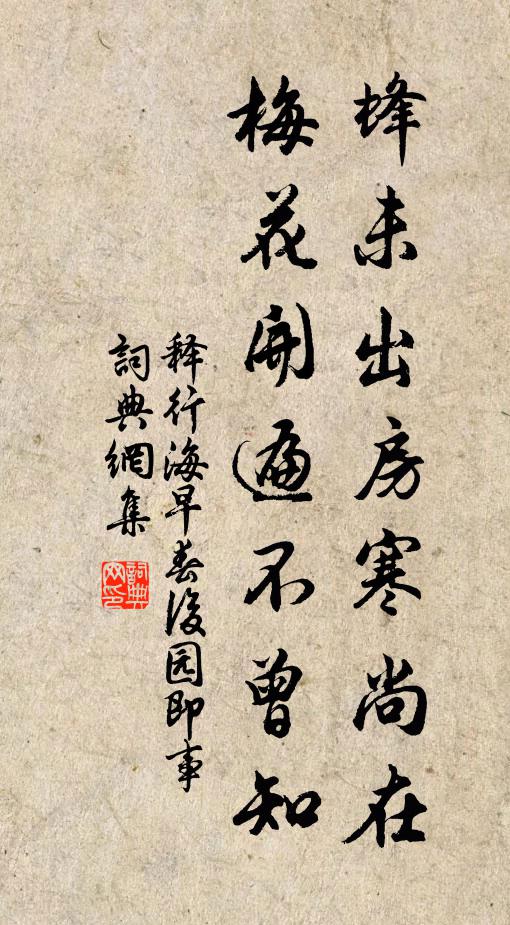 蜂未出房寒尚在
梅花開遍不曾知
释行海早春后园即事
詞典網集
詞典
网印